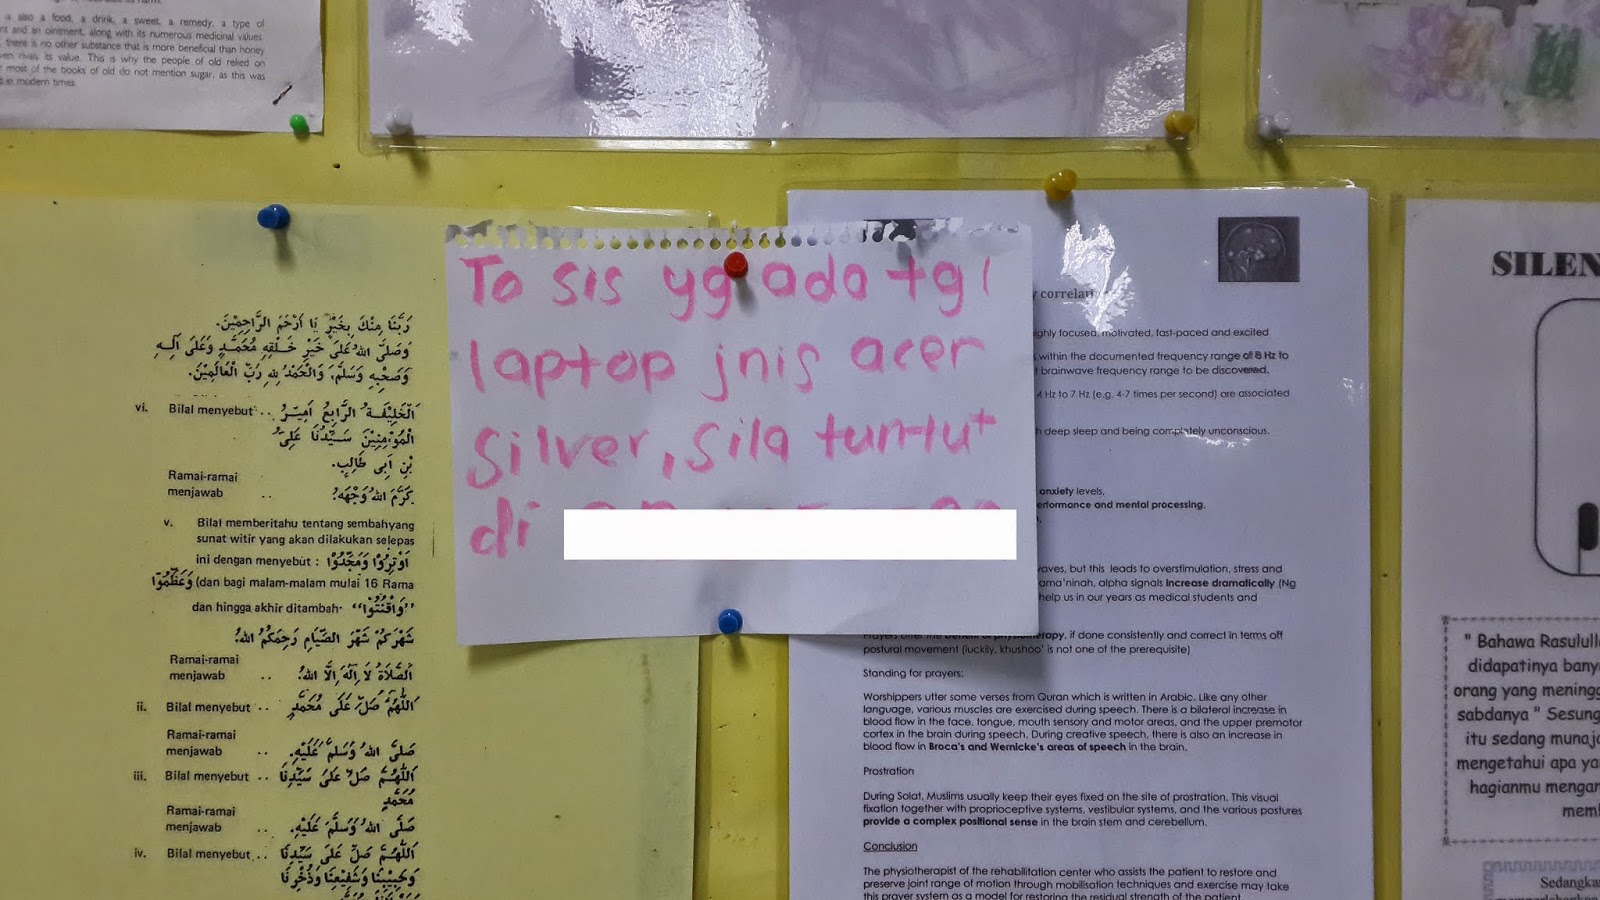 is also a food, a drink, a sweet, a remedy, a type of
and an ointment, along with its numerous medicinal values.
there is no other substance that is more beneficial than honey
rivals its value. This is why the people of old relied on
most of the books of old do not mention sugar, as this was
in modern times.
To sis yg ada tgl
laptop jnis acer
silver, sila tuntut
di
رَبَّنَا مِنْكَ بِخَيْرٍ يَا اَرْحَمَ الرَّاحِمِيْنَ.
وَصَلَّى اللهُ عَلَى خَيْرِ خَلْقِهِ مُحَمَّدٍ وَعَلَى آلِهِ
وَصَحْبِهِ وَسَلَّمَ، وَالْحَمْدُ لِلّٰهِ رَبِّ الْعَالَمِيْنَ.
vi. Bilal menyebut .. اَلْخَلِيْفَةُ الرَّابِعُ اَمِيْرُ
الْمُؤْمِنِيْنَ سَيِّدُنَا عَلِيُّ
بْنِ اَبِى طَالِبٍ.
Ramai-ramai
menjawab .. كَرَّمَ اللهُ وَجْهَهُ:
v. Bilal memberitahu tentang sembahyang
sunat witir yang akan dilakukan selepas
ini dengan menyebut : اَوْتِرُوْا وَمَجِّدُوْا
وَعَظِّمُوْا (dan bagi malam-malam mulai 16 Rama
dan hingga akhir ditambah· “وَاقْنُتُوْا”
شَهْرَكُمْ شَهْرَ الصِّيَامِ رَحِمَكُمُ اللهُ:
Ramai-ramai
menjawab .. اَلصَّلَاةُ لَا اِلٰهَ اِلَّا اللهُ:
ii. Bilal menyebut .. اَللّٰهُمَّ صَلِّ عَلَى مُحَمَّدٍ
Ramai-ramai
menjawab .. صَلَّى اللهُ وَسَلَّمَ عَلَيْهِ.
iii. Bilal menyebut .. اَللّٰهُمَّ صَلِّ عَلَى سَيِّدِنَا
مُحَمَّدٍ
Ramai-ramai
menjawab .. صَلَّى اللهُ وَسَلَّمَ عَلَيْهِ.
iv. Bilal menyebut .. اَللّٰهُمَّ صَلِّ عَلَى سَيِّدِنَا
وَحَبِيْبِنَا وَشَفِيْعِنَا وَذُخْرِنَا
highly focused, motivated, fast-paced and excited
within the documented frequency range of 8 Hz to
brainwave frequency range to be discovered.
4 Hz to 7 Hz (e.g. 4-7 times per second) are associated
deep sleep and being completely unconscious.
anxiety levels,
performance and mental processing.
waves, but this leads to overstimulation, stress and
ama'ninah, alpha signals increase dramatically (Ng
help us in our years as medical students and
Prayers offer the benefit of physiotherapy, if done consistently and correct in terms off
postural movement (luckily, khushoo' is not one of the prerequisite)
Standing for prayers:
Worshippers utter some verses from Quran which is written in Arabic. Like any other
language, various muscles are exercised during speech. There is a bilateral increase in
blood flow in the face, tongue, mouth sensory and motor areas, and the upper premotor
cortex in the brain during speech. During creative speech, there is also an increase in
blood flow in Broca's and Wernicke's areas of speech in the brain.
Prostration
During Solat, Muslims usually keep their eyes fixed on the site of prostration. This visual
fixation together with proprioceptive systems, vestibular systems, and the various postures
provide a complex positional sense in the brain stem and cerebellum.
Conclusion
The physiotherapist of the rehabilitation center who assists the patient to restore and
preserve joint range of motion through mobilisation techniques and exercise may take
this prayer system as a model for restoring the residual strength of the patient.
SILEN
" Bahawa Rasulull
didapatinya bany
orang yang mening
sabdanya " Sesung
itu sedang munaj
mengetahui apa ya
hagianmu mengan
mem
Sedangka